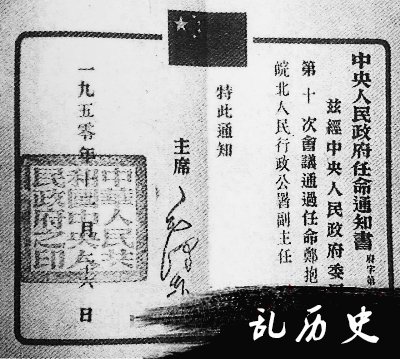 中央人民政府任命通知書 府字第
茲經中央人民政府委員
第十次會議通過任命鄭抱
皖北人民行政公署副主任
特此通知
主席 毛澤東
一九五零年 月 六日
中華人民共和國中央人民政府之印
乱历史